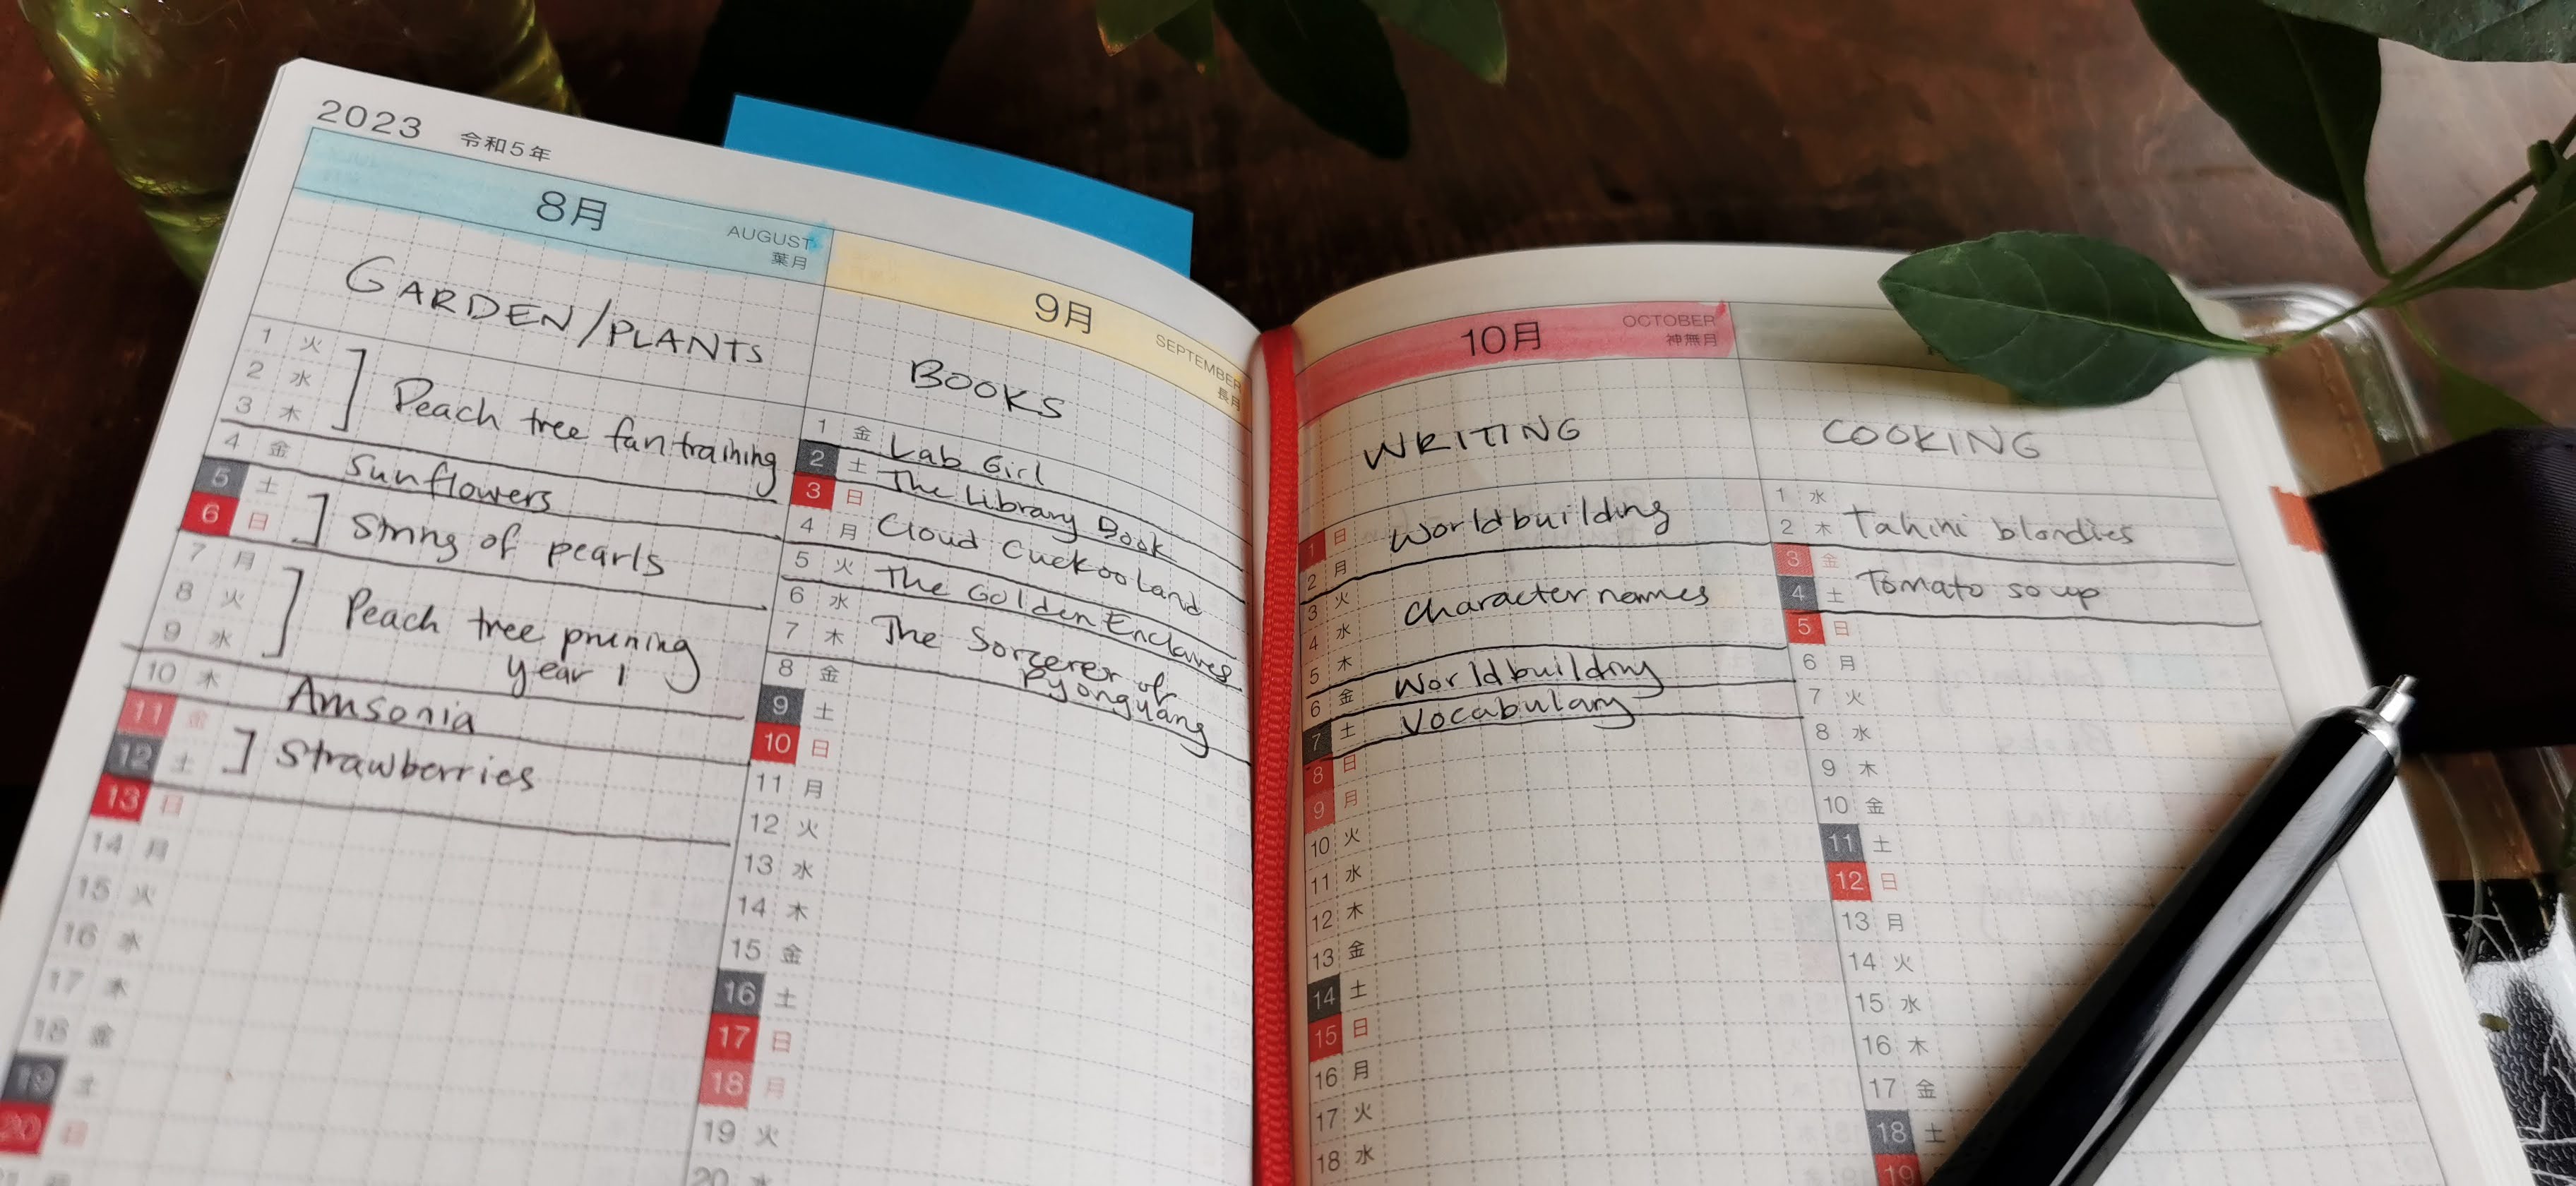 2023 令和5年
8月 AUGUST 葉月
GARDEN/PLANTS
1 火
2 水
3 木
Peach tree fan training
4 金 Sunflowers
5 土
6 日
String of pearls
7 月
8 火
9 水
Peach tree pruning
year 1
10 木 Amsonia
11 金
12 土
Strawberries
13 日
14 月
15 火
16 水
17 木
18 金
19 土
20 日
9月 SEPTEMBER 長月
BOOKS
1 金 Lab Girl
2 土 The Library Book
3 日
4 月 Cloud Cuckoo Land
5 火 The Golden Enclaves
6 水
7 木 The Sorcerer of
Pyongyang
8 金
9 土
10 日
11 月
12 火
13 水
14 木
15 金
16 土
17 日
18 月
19 火
20 水
10月 OCTOBER 神無月
WRITING
1 日 Worldbuilding
2 月
3 火 Character names
4 水
5 木 Worldbuilding
6 金 Vocabulary
7 土
8 日
9 月
10 火
11 水
12 木
13 金
14 土
15 日
16 月
17 火
18 水
COOKING
1 水
2 木 Tahini blondies
3 金
4 土 Tomato soup
5 日
6 月
7 火
8 水
9 木
10 金
11 土
12 日
13 月
14 火
15 水
16 木
17 金
18 土
19